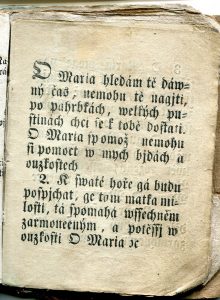 O Maria hledám tě dáw-
ný čas; nemohu tě nagjti,
po pahrbkách, welkých pu-
stinách chci se k tobě dostati.
O Maria spomož nemohu
si pomoct w mych bjdách a
ouzkostech
2. K swaté hoře gá budu
pospjchat, ge tom matka mi-
losti, tá spomahá wssechněm
zarmouceným, a potěssý w
ouzkosti O Maria ꝛc